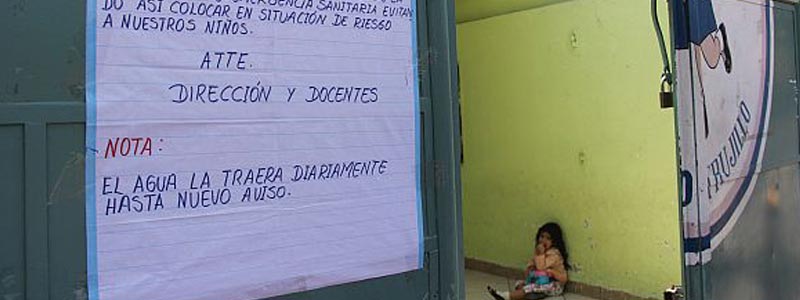 EMERGENCIA SANITARIA EVITAN
DO ASÍ COLOCAR EN SITUACIÓN DE RIESGO
A NUESTROS NIÑOS.
ATTE.
DIRECCIÓN Y DOCENTES
NOTA:
EL AGUA LA TRAERA DIARIAMENTE
HASTA NUEVO AVISO.
TRUJILLO